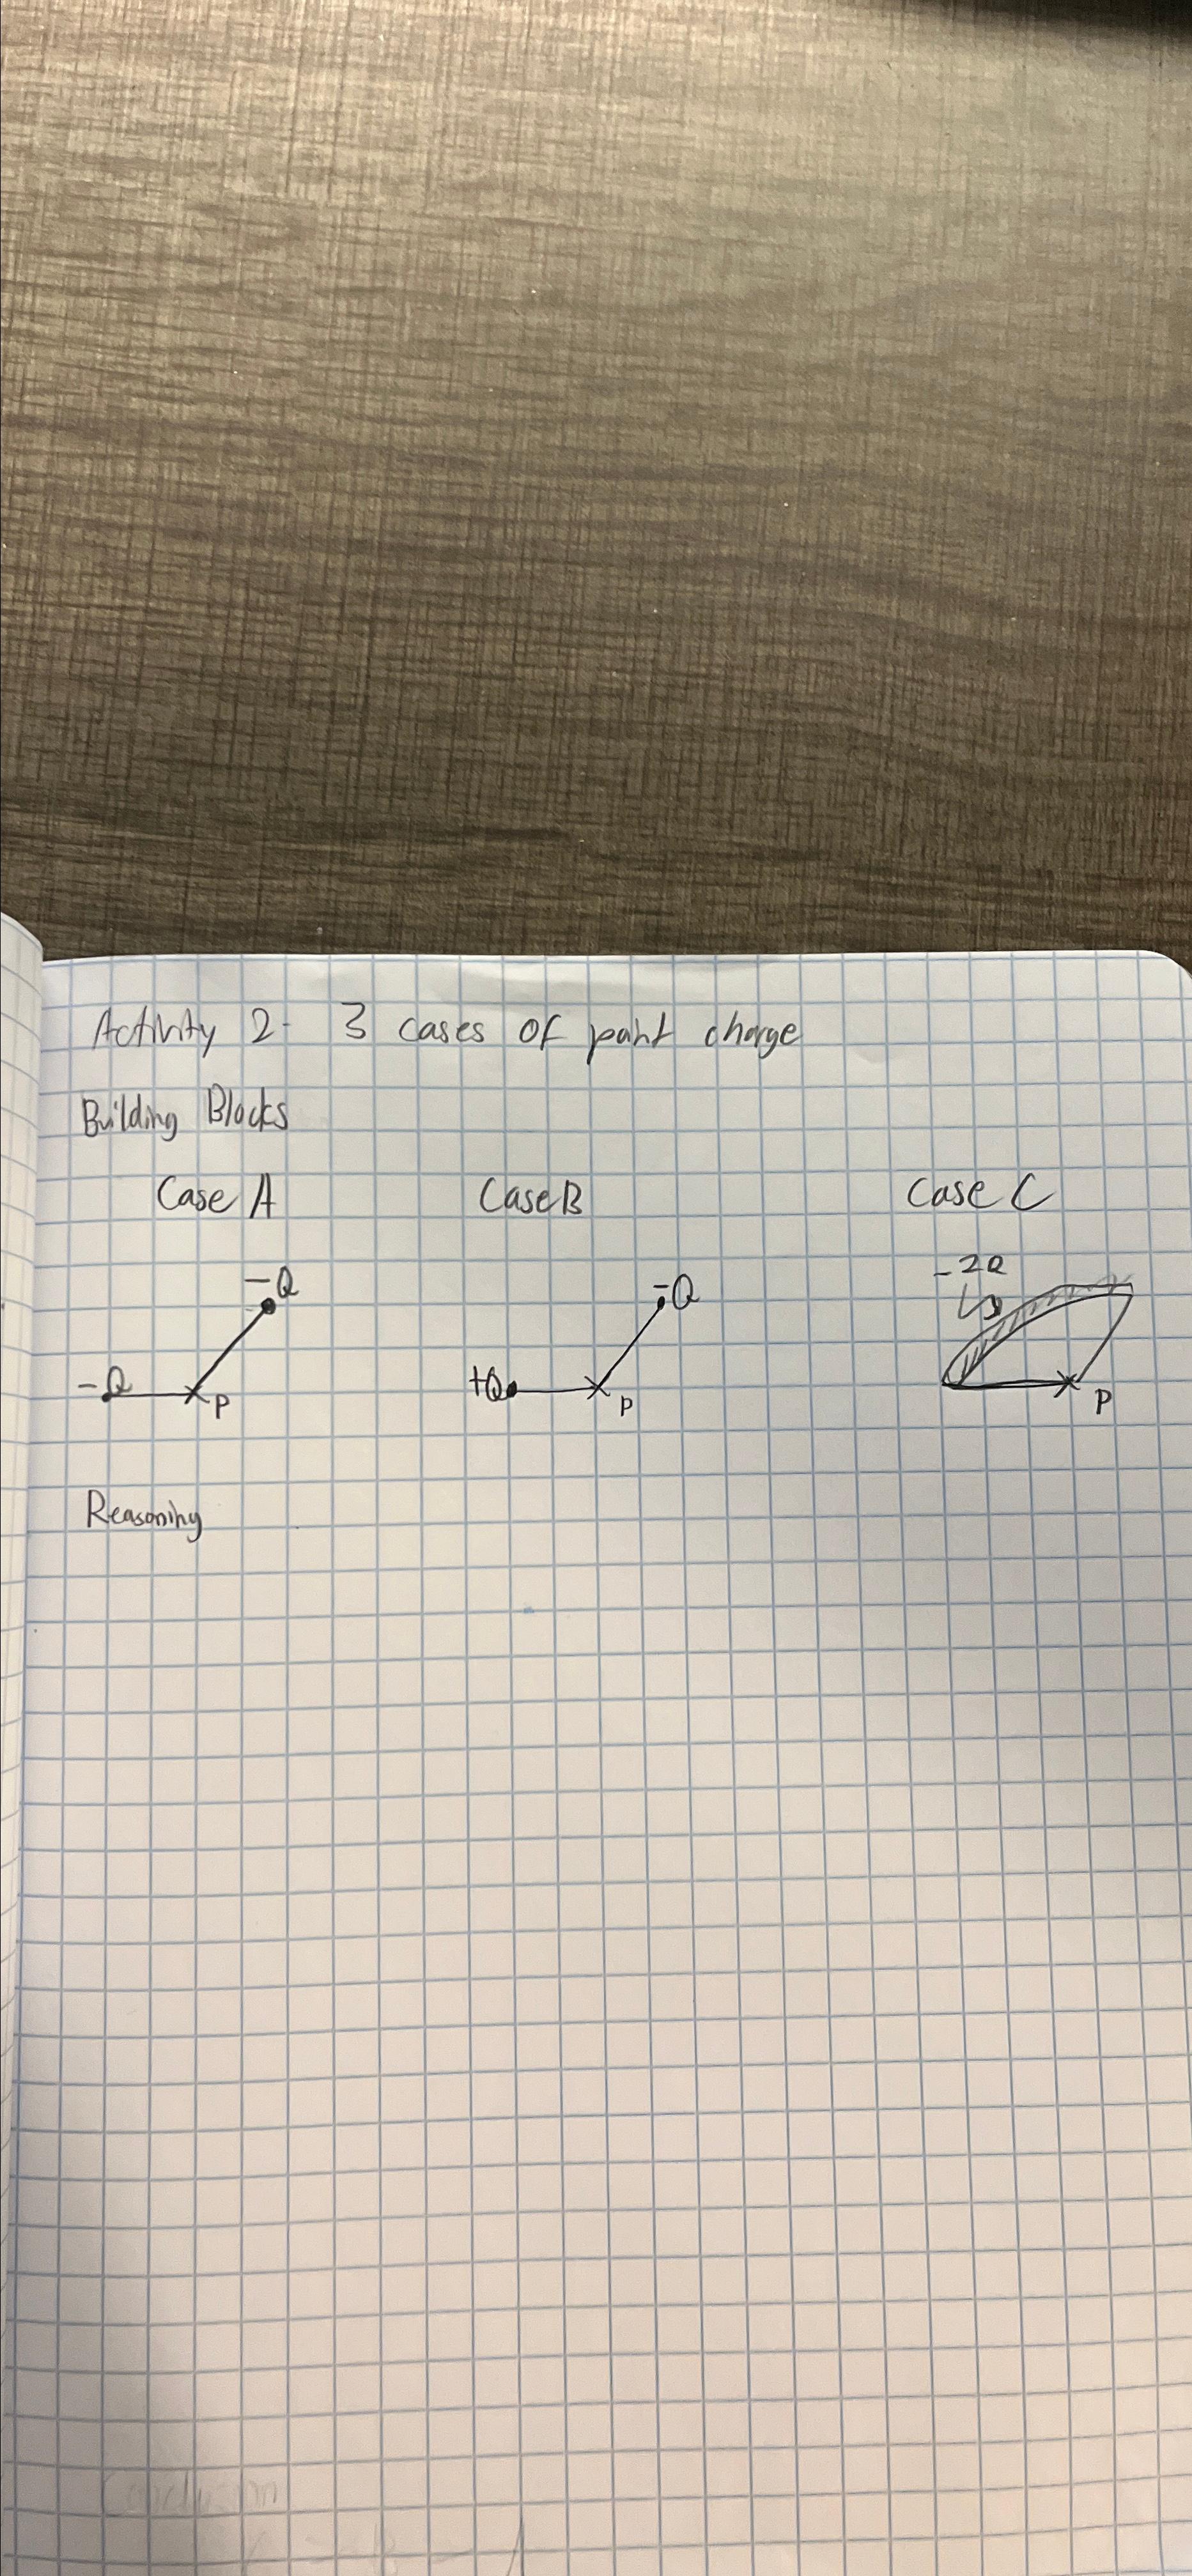 Activity 2- 3 cases of point charge
Building Blocks
Case A Case B Case C
-Q -Q -2Q
-Q P +Q P P
Reasoning
Conclusion